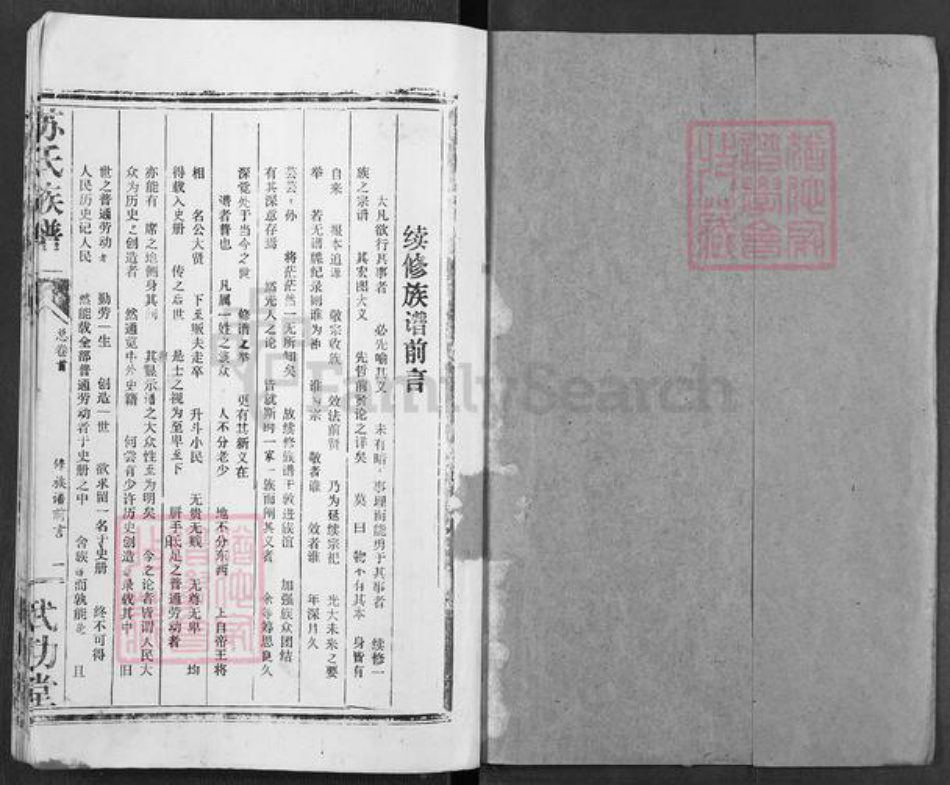 续修族谱前言
大凡欲行其事者 必先喻其义 未有暗 事理而能勇于其事者 续修一
族之宗谱 其宏图大义 先哲前贤论之详矣 莫曰 物 有其本 身皆有
自来 报本追源 敬宗收族 效法前贤 乃为延续宗祀 光大未来之要
举 若无谱牒纪录则谁为 谁为宗 敬者谁 效者谁 年深月久
芸芸 孙 将茫茫然一无所知矣 故续修族谱于敦进族谊 加强族众团结
有其深意存焉 然先人之论 皆就斯时一家一族而阐其义者 余 筹思良久
深觉处于当今之世 修谱之举 更有其新义在
谱者普也 凡属一姓之族众 人不分老少 地不分东西 上自帝王将
相 名公大贤 下至贩夫走卒 升斗小民 无贵无贱 无尊无卑 均
得载入史册 传之后世 是士之视为至卑至下 胼手胝足之普通劳动者
亦能有 席之地侧身其间 其显示谱之大众性至为明矣 今之论者皆谓人民大
众为历史之创造者 然通览中外史籍 何尝有少许历史创造 录载其中 旧
世之普通劳动者 勤劳一生 创造一世 欲求留一名于史册 终不可得
人民历史记人民 然能载全部普通劳动者于史册之中 舍族谱而孰能 且
苏氏族谱
总卷首
修族谱前言
一
武功堂
FamilySearch